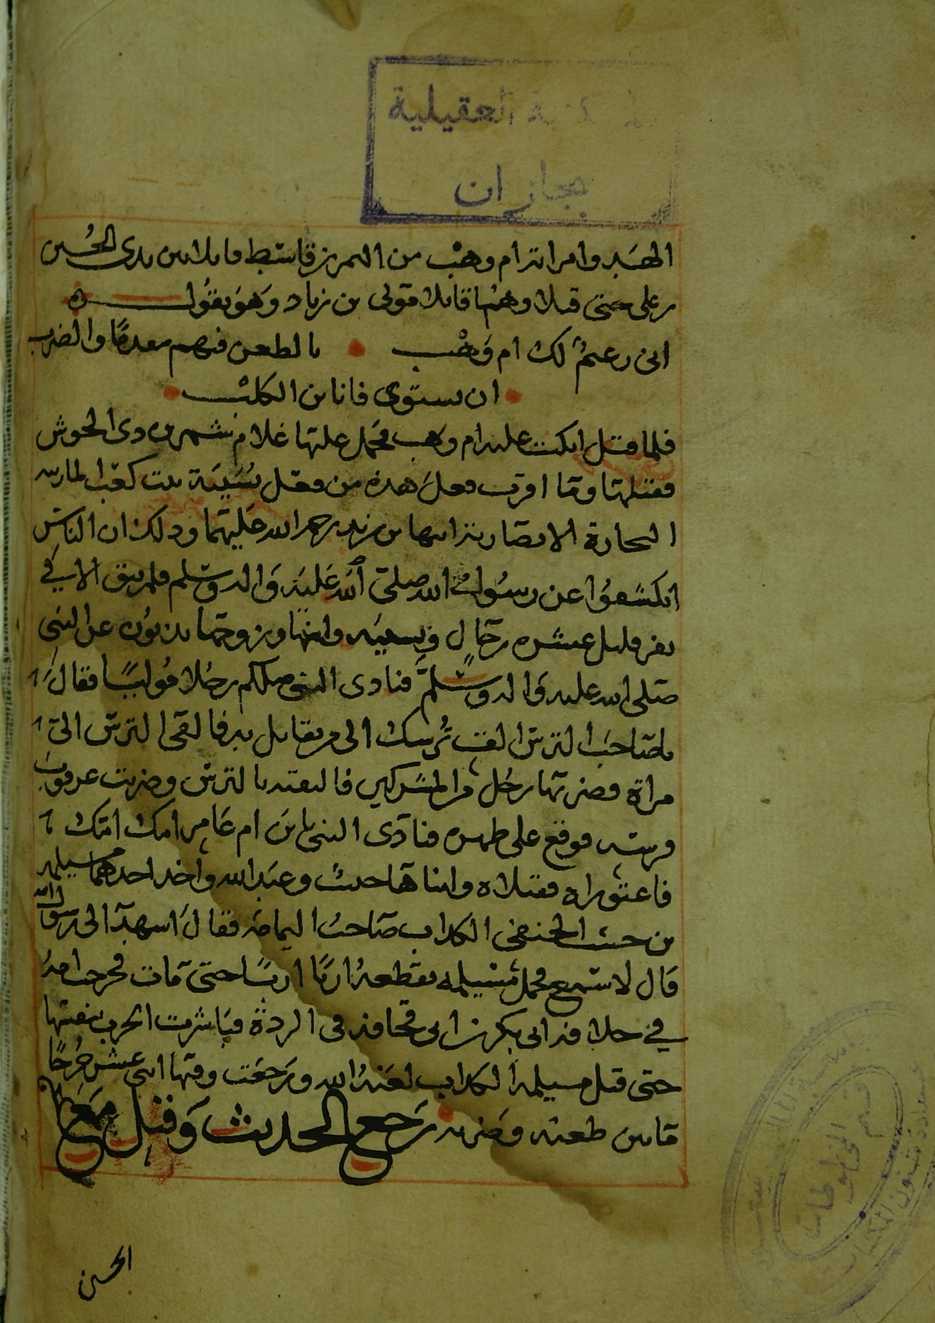 العقيلية
بجازان
وامراته ام وهب من النمر بن قاسط قاتلا بين يدي الحسين
بن علي حتى قتلا وهب قاتلا مولى بن زياد وهو يقول
اني زعيم لك ام وهب بالطعن فيهم مقدما والضرب
ان يستوى فانا بن الكلب
فلما قتل اتكت عليه ام وهب فحمل عليها غلام شمر بن ذى الجوش
فقتلها وما اقرب فعل هذه من فعل نسيبة بنت كعب المازنيه
النجارة الانصارية ابنها بن زيد رحمة الله عليهما وذلك ان الناس
انكشفوا عن رسول الله صلى الله عليه واله وسلم فلم يبق الا في
نفر قليل عشره رجال ونسيبه وابنها وزوجها يذبون عن النبي
صلى الله عليه واله وسلم فنادى النبي صلكم رجلا موليا فقال
يا صاحب الترس الق ترسك الى من يقاتل به فالقى الترس الى ا
مراة فضربها رجل من المشركين فاتقته بالترس وضربت عرقوب
فرسه فوقع على ظهره فنادى النبي يا بن ام عامر امك امك
فاعتوراه فقتلاه وابناها حبيب وعبد الله واخذ احدهما مسيلمه
بن حبيب الحنفي الكذاب صاحب اليمامه فقال اتشهد انى رسول الله
قال لا اسمع فجعل مسيلمه يقطعه اربا اربا حتى مات فخرجت امه
في خلافة ابى بكر بن ابى قحافة فى الردة فباشرت الحرب بنفسها
حتى قتل مسيلمه الكذاب لعنه الله ورجعت وفيها اثني عشر جرحا
مابين طعنه وضربه رجع الحديث وقتل مع
الحسين
قسم المخطوطات